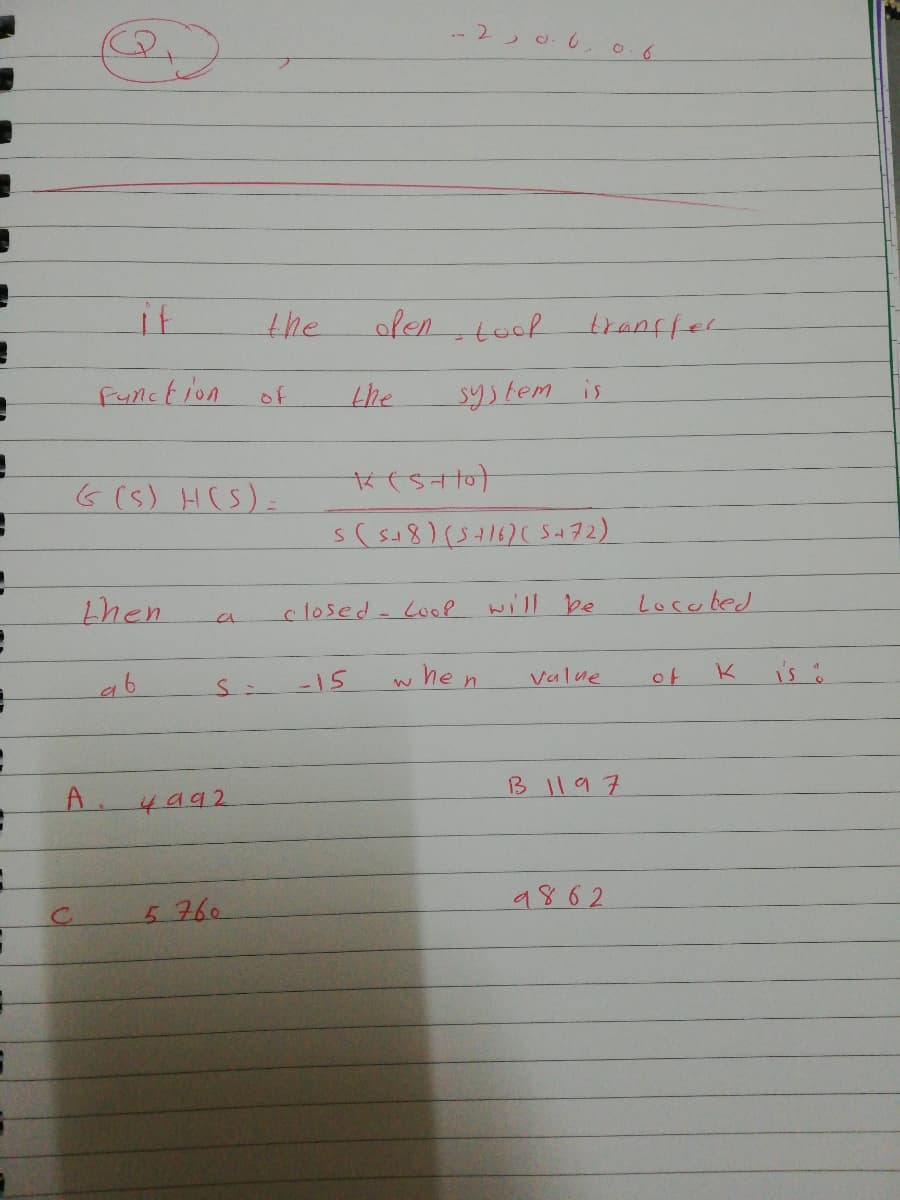 Q1 , -2, 0.6, 0.6
if the open-loop transfer
Function of the system is
G(s) H(s) = K(S+10)
s(s+8)(s+16)(s+72)
then a closed-loop will be Located
at s = -15 when value of K is:
A. 4992 B 1197
C 5760 9862